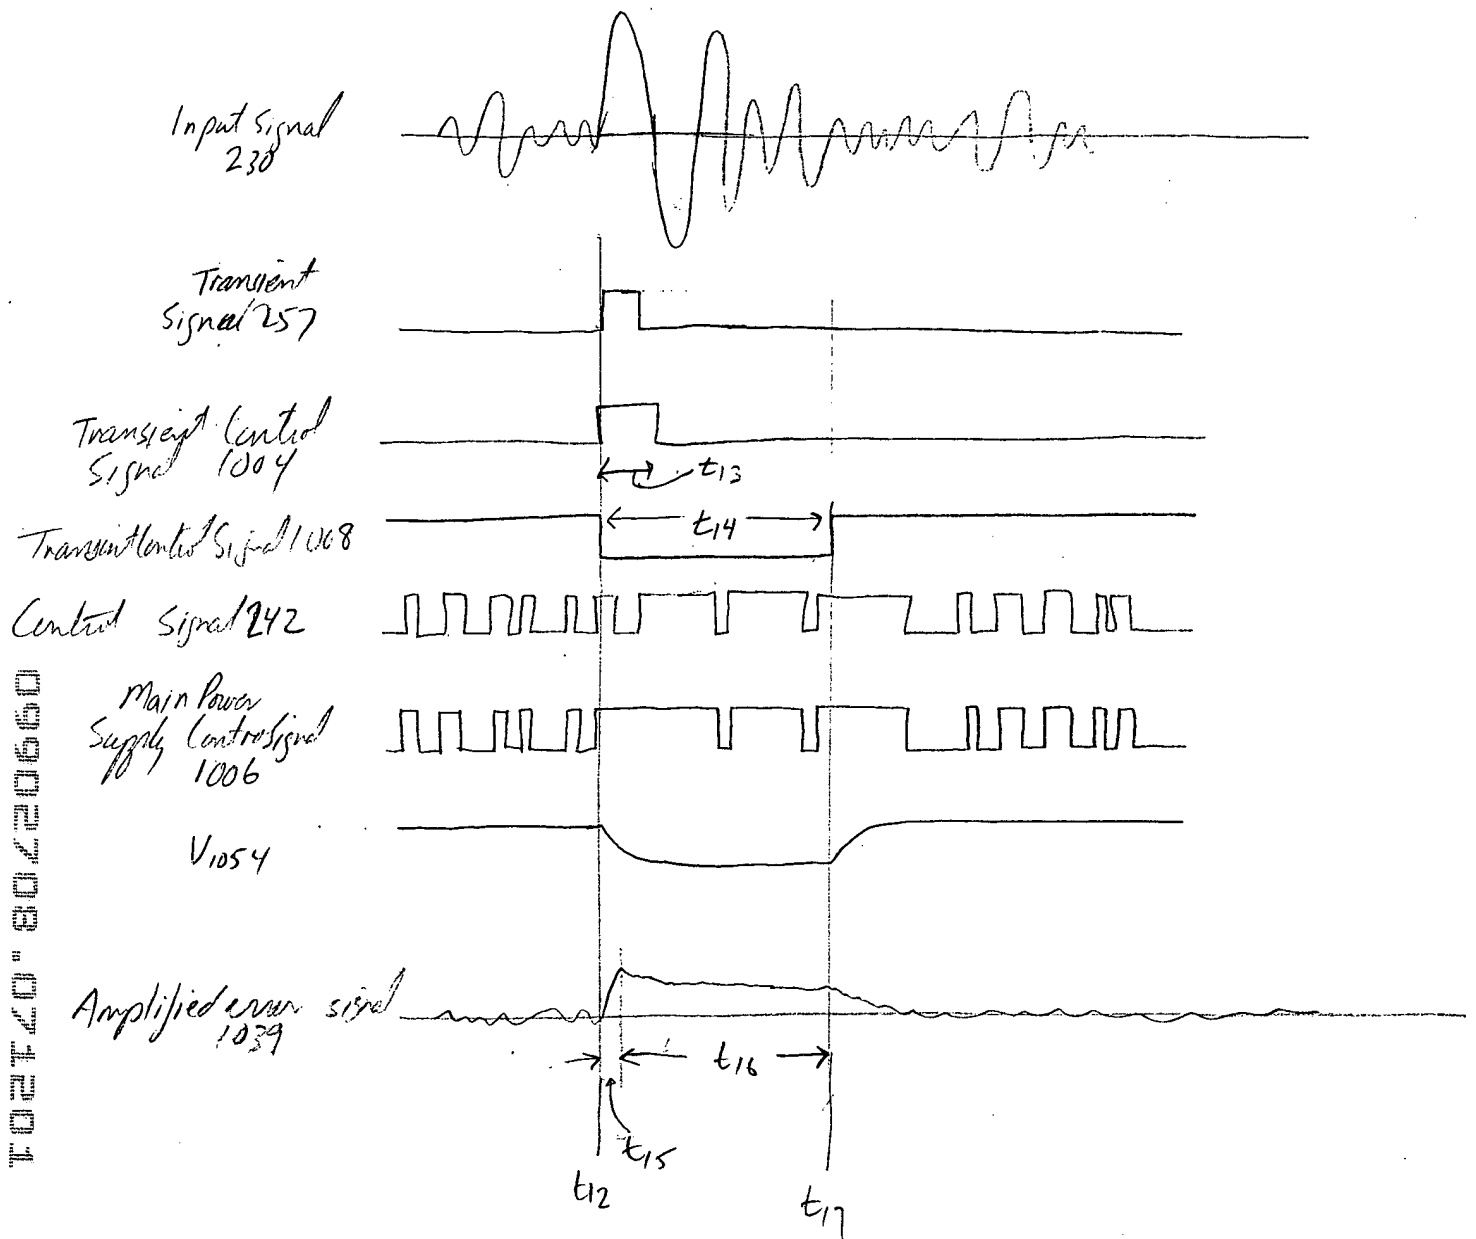 Input Signal
230
Transient
Signal 257
Transient Control
Signal 1004
t13
Transient Control Signal 1008
t14
Control Signal 242
Main Power
Supply Control Signal
1006
V1054
Amplified error signal
1039
t16
t15
t12
t17
09902708.071201